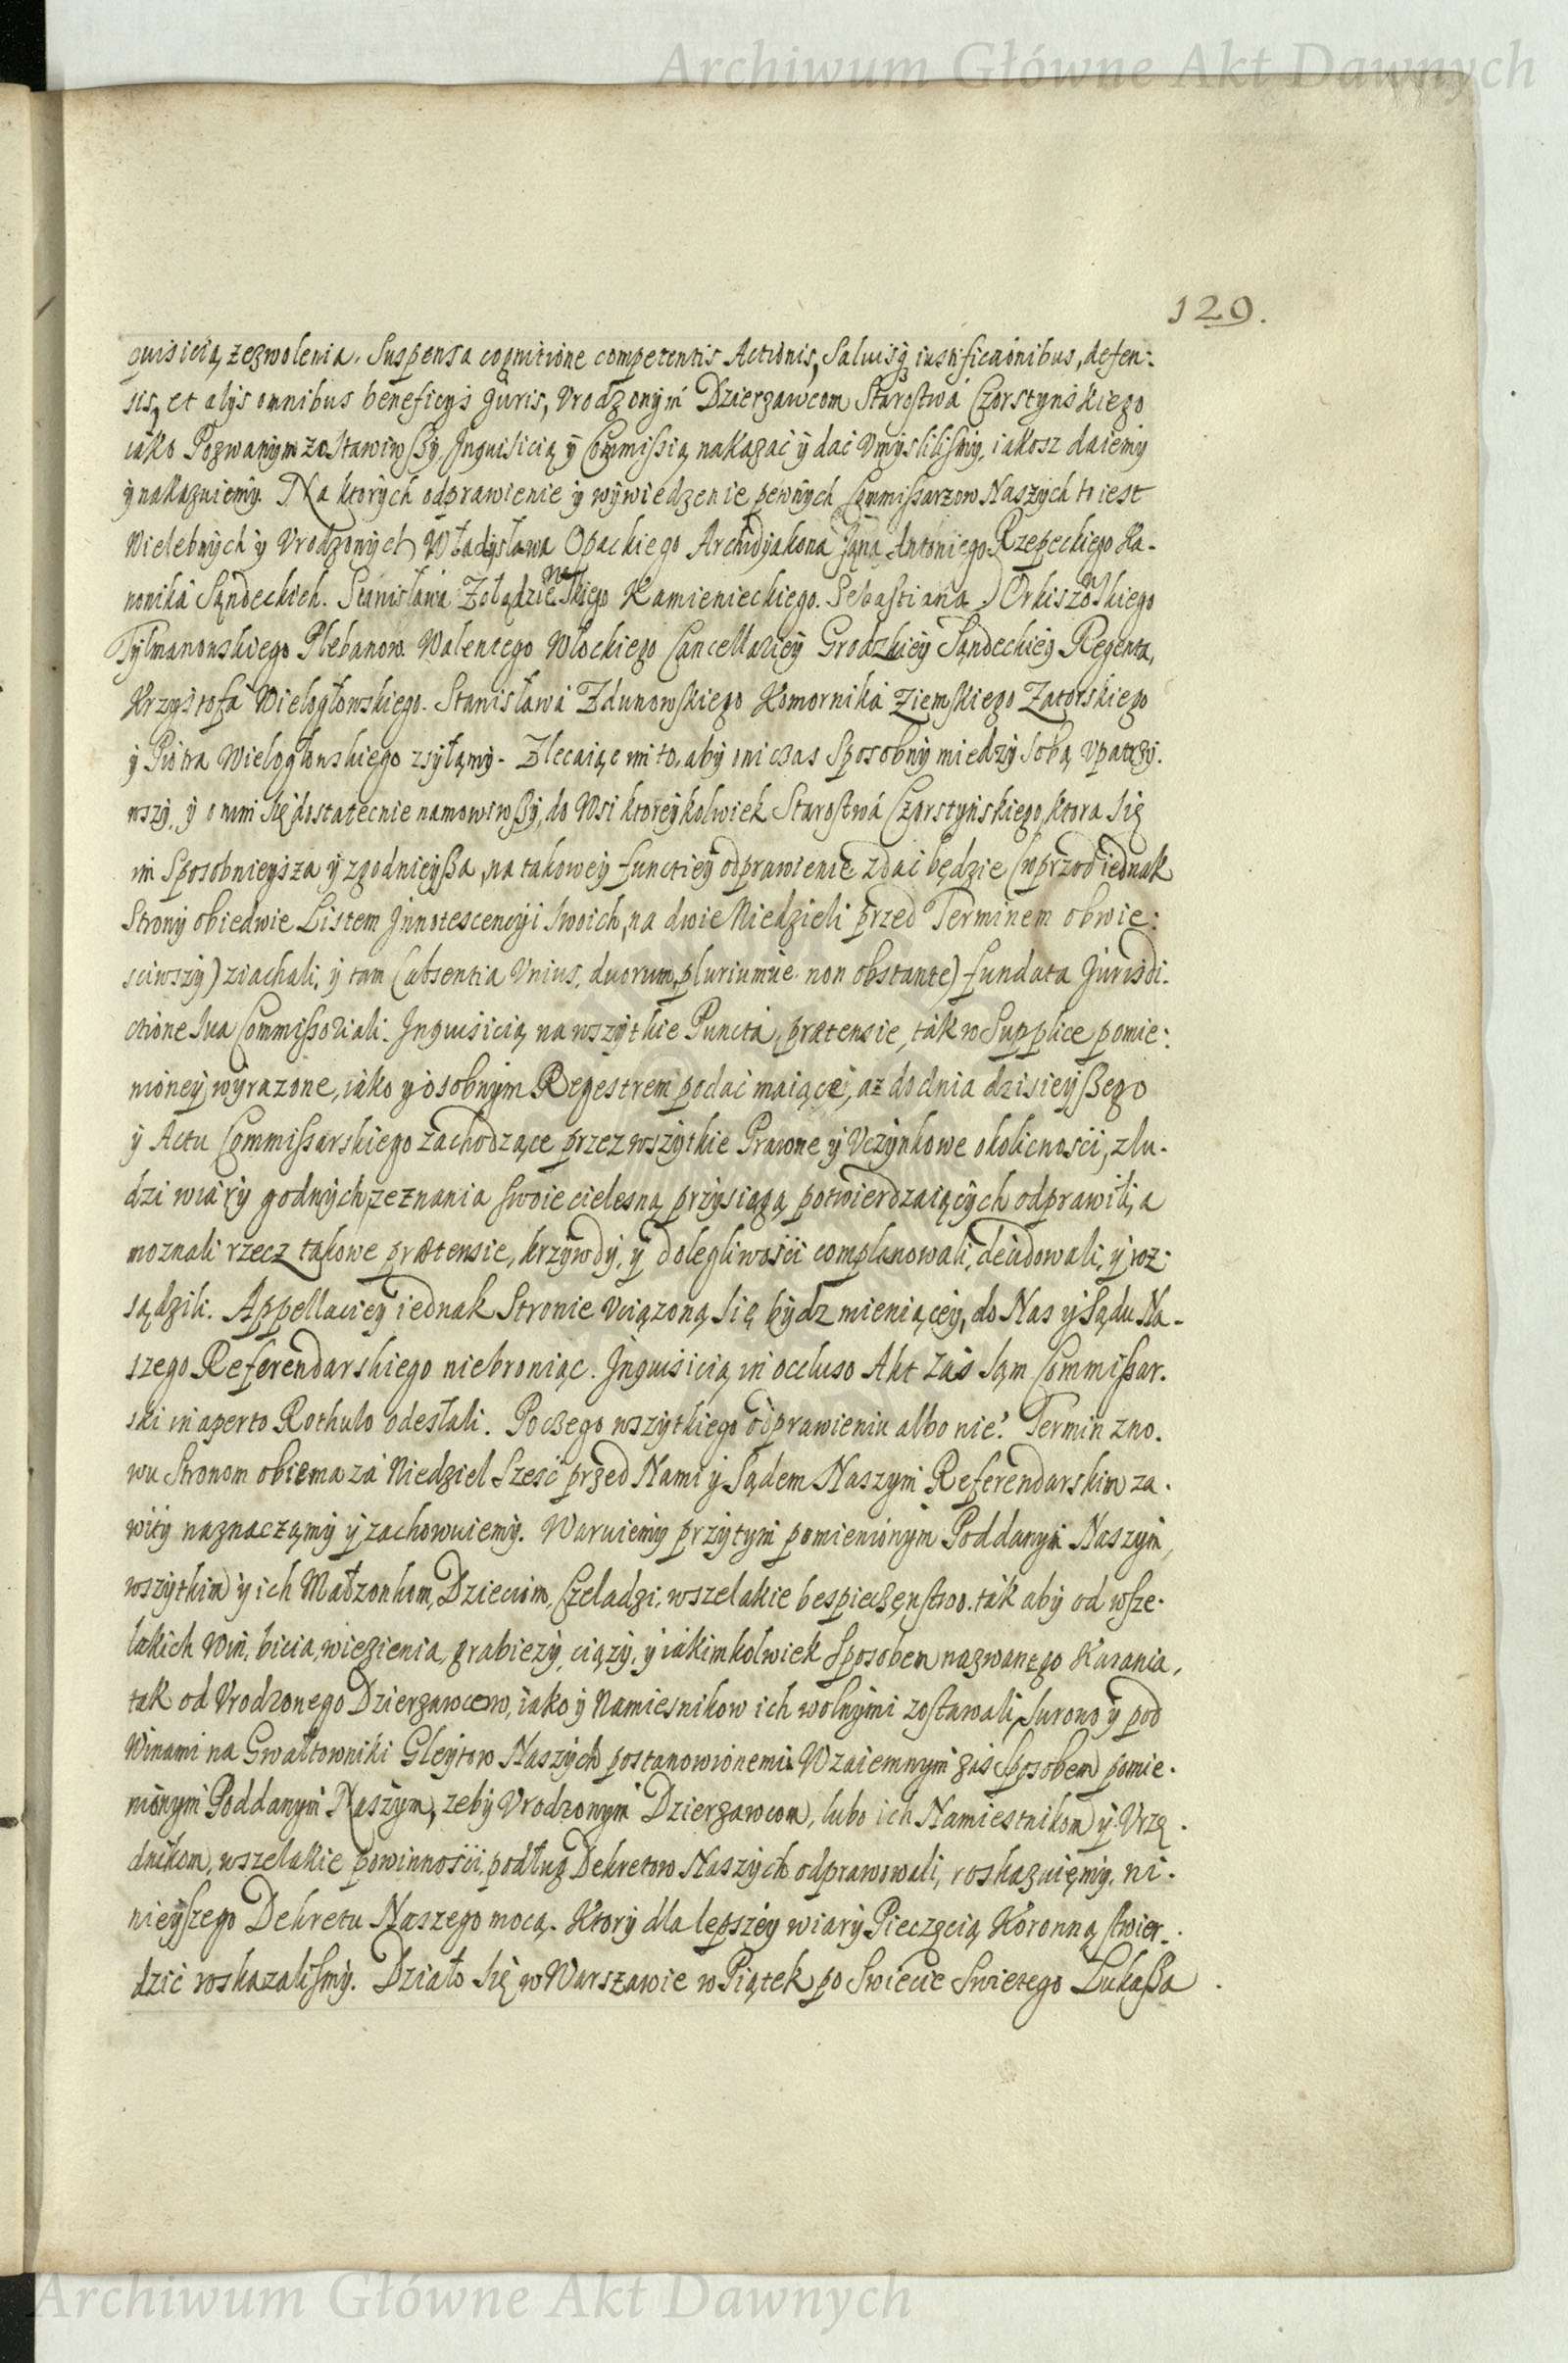 Archiwum Główne Akt Dawnych
129.
quisicią zezwolenia. Suspensa cognitione competentis Actionis, Saluisq iustificaõnibus, defen:
sis, et alÿs omnibus beneficÿs Juris, Vrodzonÿm Dzierzawcom Starostwá Czorstynskiego
iáko Pozwanÿm zostawiwszÿ, Jnquisicią ÿ Commissią nakazać ÿ dać Vmÿslilismÿ, iakosz daiemÿ
ÿ nakazuiemÿ. Na ktorÿch odprawienie ÿ wÿwiedzenie pewnÿch Commissarzow Naszÿch to iest
Wielebnÿch ÿ Vrodzonÿch Władÿsława Opackiego Archidÿakona Jana Antoniego Rzepeckiego Ka-
nonika Sądeckich. Stanisława Zołądzieskiego Kamienieckiego. Sebastiana Orkiszowskiego
Tÿlmanowskiego Plebanow. Walentego Włockiego Cancellariey Grodzkiey Sądeckiey Regenta,
Krzÿstofa Wielogłowskiego. Stanisława Zdunowskiego Komornika Ziemskiego Zatorskiego
ÿ Piotra Wielogłowskiego zsÿłamÿ. Zlecaiąc im to, abÿ oni czas Sposobnÿ miedzÿ sobą Vpatrzÿ.
wszÿ, ÿ o nim się dostatecnie namowiwszÿ, do Wsi ktoreÿkolwiek Starostwá Czorstÿnskiego, ktora się
im Sposobnieysza ÿ zgodnieÿsza, na takoweÿ functieÿ odprawienie zdać będzie (wprzod iednak
Stronÿ obiedwie Listem Jnnotescencÿi swoich, na dwie Niedzieli przed Terminem obwie:
sciwszÿ) ziachali, ÿ tam (absentia Vnius, duorum, pluriumue non obstante) fundata Jurisdi.
ctione sua Commissoriali. Jnquisicią na wszÿtkie Puncta, prætensie, ták w Supplice pomie:
nioneÿ wÿrazone, iáko ÿ osobnÿm Regestrem podać maiące, az do dnia dzisieÿszego
ÿ Actu Commissarskiego zachodzące przez wszÿtkie Prawne ÿ Vczÿnkowe okolicnosci, z lu.
dzi wiárÿ godnÿch zeznania swoie cielesną przÿsięgą potwierdzaiącÿch odprawili, a
moznali rzecz takowe prætensie, krzÿwdÿ, ÿ dolegliwosci complanowali, decidowali, ÿ roz:
sądzili. Appellacieÿ iednak Stronie Vciązoną się bÿdz mieniąceÿ, do Nas ÿ Sądu Na-
szego Referendarskiego niebroniąc. Jnquisicią in occluso Akt zás sam Commissar.
ski in aperto Rothulo odesłali. Po czego wszÿtkiego odprawieniu albo nie? Termin zno.
wu Stronom obiema zá Niedziel Szesć przed Nami ÿ Sądem Naszÿm Referendarskim za.
witÿ naznaczamÿ ÿ zachowuiemÿ. Waruiemÿ przÿtÿm pomienionÿm Poddanÿm Naszÿm,
wszÿtkim ÿ ich Małzonkom, Dzieciom, Czeladzi, wszelakie bespieczenstwo. ták abÿ od wsze.
lakich Win, bicia, wiezienia, grabiezÿ, ciązÿ, ÿ iákimkolwiek Sposobem nazwanego Karania,
tak od Vrodzonego Dzierzawcow, iáko ÿ Namiesnikow ich wolnÿmi zostawali, Surowo ÿ pod
Winami na Gwałtowniki Gleÿtow Naszÿch postanowionemi. Wzaiemnÿm zás Sposobem pomie.
nionÿm Poddanÿm Naszÿm, zebÿ Vrodzonÿm Dzierzawcom, lubo ich Namiestnikom ÿ Vrzę.
dnikom, wszelakie powinnosci, podług Dekretow Naszÿch odprawowali, roskazuięmÿ, ni.
nieÿszego Dekretu Naszego mocą. Ktorÿ dla lepszéÿ wiarÿ Pieczęcią Koronną stwier.
dzić roskazalismÿ. Działo się w Warszawie w Piątek po Swiecie Swietego Lukasza
Archiwum Główne Akt Dawnych